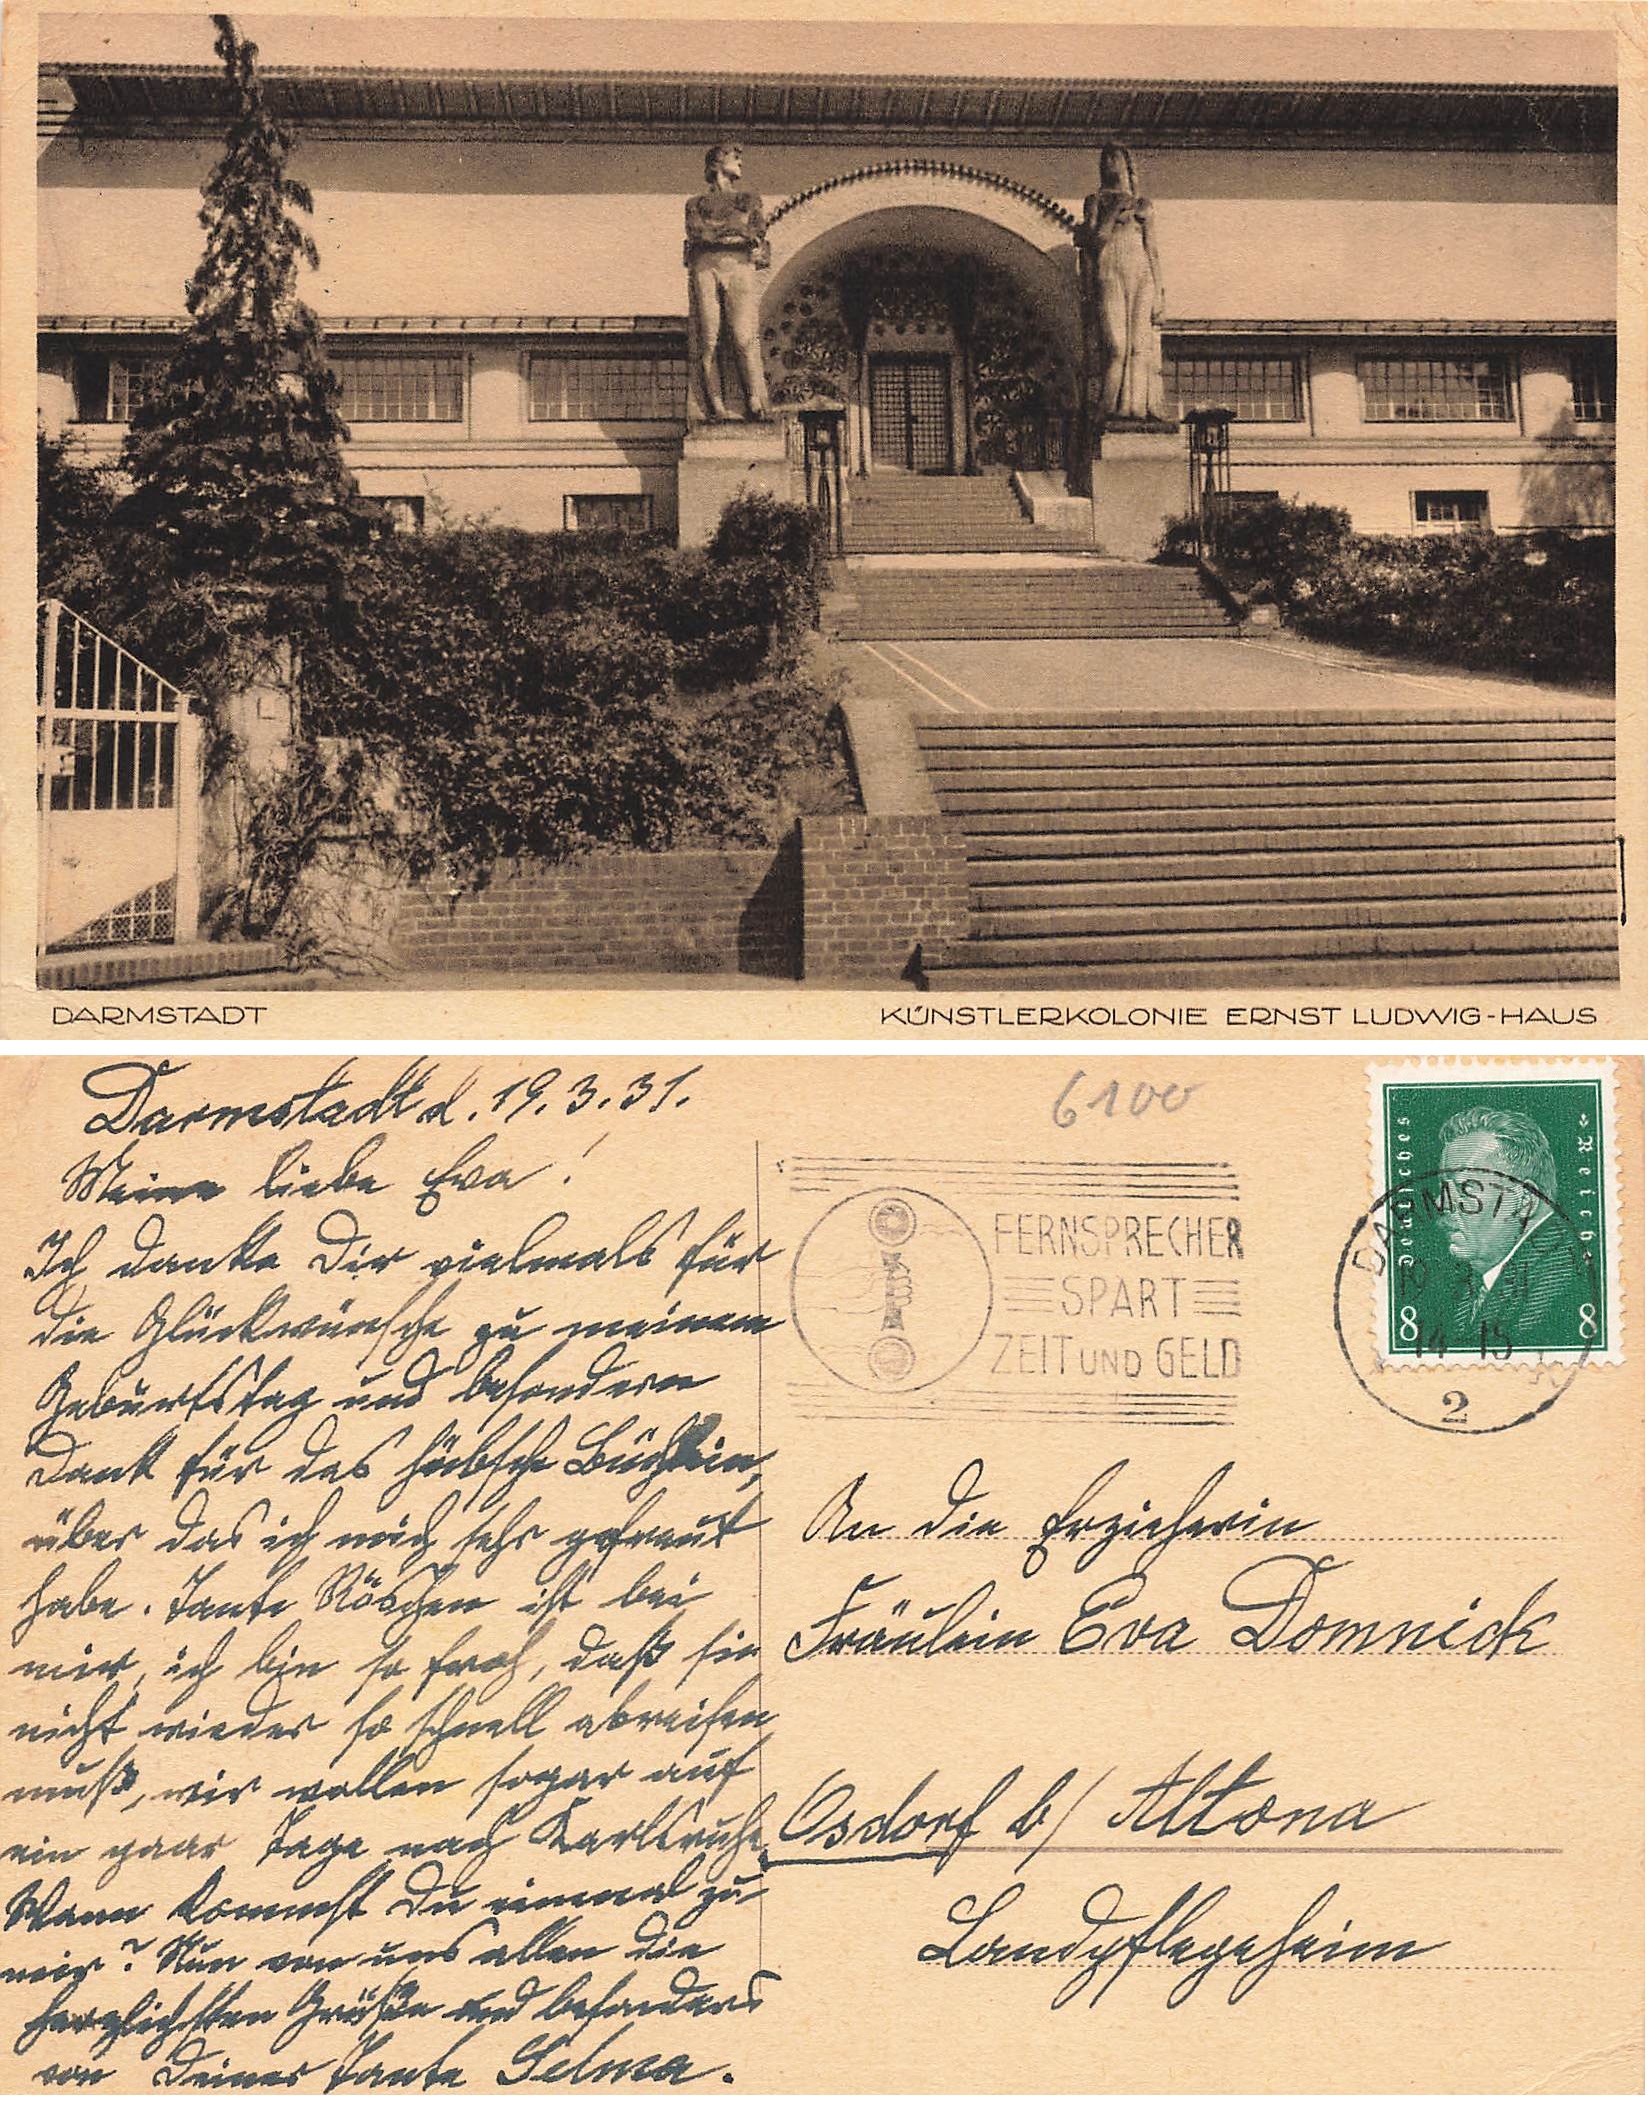 DARMSTADT
KÜNSTLERKOLONIE ERNST LUDWIG-HAUS
Darmstadt d. 19.3.31.
Meine liebe Eva!
Ich danke Dir vielmals für
die Glückwünsche zu meinem
Geburtstag und besondern
Dank für das hübsche Büchlein,
über das ich mich sehr gefreut
habe. Tante Röschen ist bei
mir, ich bin so froh, daß sie
nicht wieder so schnell abreisen
muß, wir wollen sogar auf
ein paar Tage nach Karlsruhe.
Wann kommst Du einmal zu
mir? Nun von uns allen die
herzlichsten Grüße und besonders
von Deiner Tante Selma.
6100
FERNSPRECHER
SPART
ZEIT UND GELD
Deutsches Reich
8 8
DARMSTADT
19.3.31
14-15
2
An die Erzieherin
Fräulein Eva Domnick
Osdorf b/ Altona
Landpflegeheim